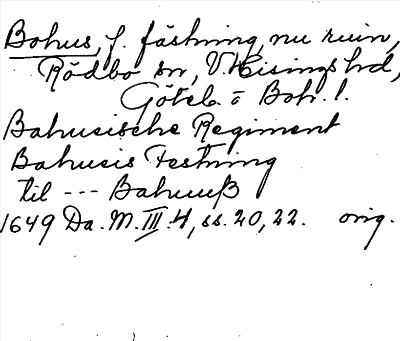 Bohus, f. fästning, nu ruin,
Rödbo sn, V. Hisings hd,
Göteb. o Boh. l.
Bahusische Regiment
Bahusis Festning
til --- Bahuuß
1649 Da. M. III:4, ss. 20, 22. orig.